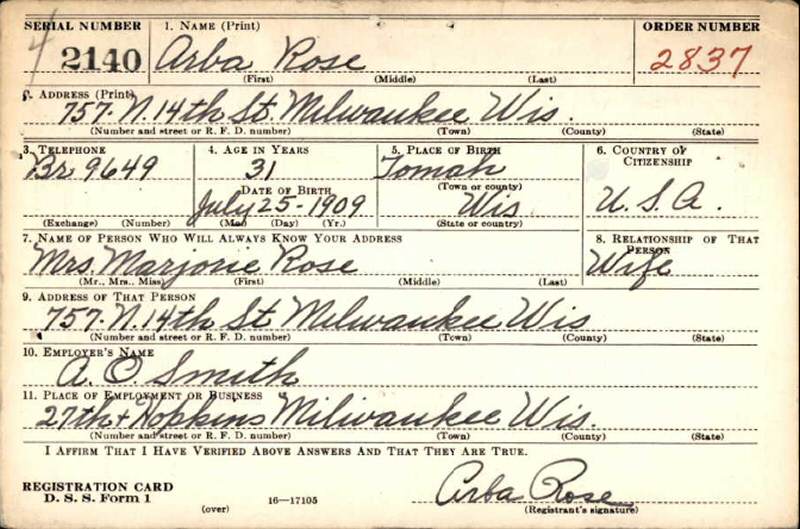 SERIAL NUMBER 1. NAME (Print) ORDER NUMBER
4 2140 Arba Rose 2837
(First) (Middle) (Last)
2. ADDRESS (Print)
757. N. 14th St. Milwaukee Wis.
(Number and street or R. F. D. number) (Town) (County) (State)
3. TELEPHONE 4. AGE IN YEARS 5. PLACE OF BIRTH 6. COUNTRY OF CITIZENSHIP
Br 9649 31 Tomah
DATE OF BIRTH (Town or county)
July 25-1909 Wis U.S.A.
(Exchange) (Number) (Mo.) (Day) (Yr.) (State or country)
7. NAME OF PERSON WHO WILL ALWAYS KNOW YOUR ADDRESS 8. RELATIONSHIP OF THAT PERSON
Mrs. Marjorie Rose Wife
(Mr., Mrs., Miss) (First) (Middle) (Last)
9. ADDRESS OF THAT PERSON
757. N. 14th St Milwaukee Wis
(Number and street or R. F. D. number) (Town) (County) (State)
10. EMPLOYER'S NAME
A. O. Smith
11. PLACE OF EMPLOYMENT OR BUSINESS
27th + Hopkins Milwaukee Wis.
(Number and street or R. F. D. number) (Town) (County) (State)
I AFFIRM THAT I HAVE VERIFIED ABOVE ANSWERS AND THAT THEY ARE TRUE.
REGISTRATION CARD
D. S. S. Form 1 16—17105 Arba Rose
(over) (Registrant's signature)